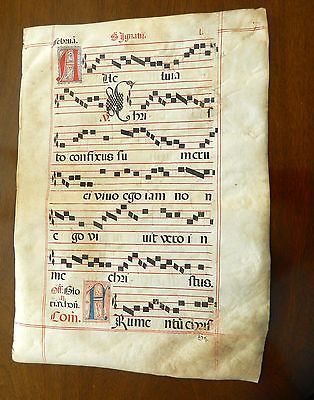 Februa. S. Ignatii. 1.
A lle luia
V. Chri s
to confixus su m cru
ci vivo ego iam no n
ego vi vit vero i n
me chri stus.
Off. Glo
ria. & hon.
Com. F Rume ntu chris